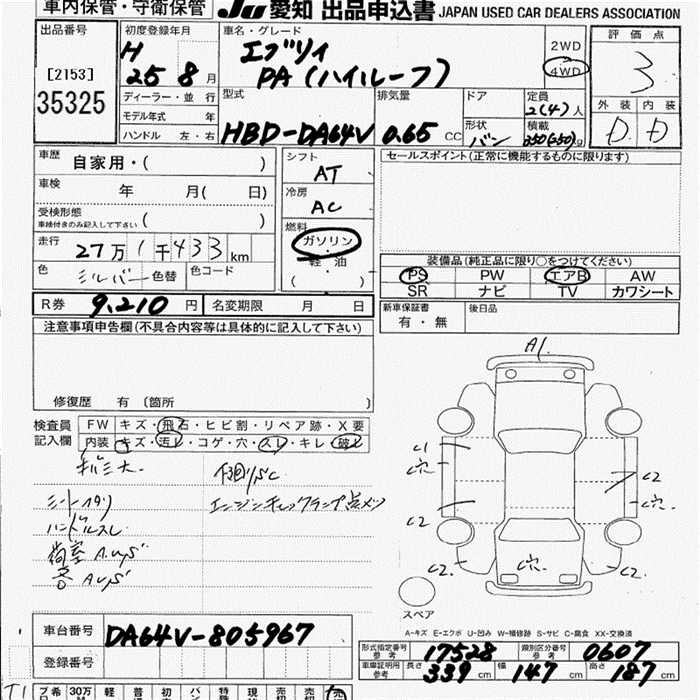 車内保管・守衛保管 JU 愛知 出品申込書 JAPAN USED CAR DEALERS ASSOCIATION
出品番号 初度登録年月 車名・グレード 評価点
[2153] H 25 8月 エブリイ 2WD 3
35325 PA (ハイルーフ) 4WD
ディーラー・並行 型式 排気量 ドア 定員 2(4)人 外装 内装
モデル年式 年 HBD-DA64V 0.65 CC 形状 バン 積載 350(250)kg D D
ハンドル 左・右
車歴 自家用・( ) シフト AT セールスポイント(正常に機能するものに限ります)
車検 年 月( 日) 冷房 AC
受検形態 ( ) 燃料
車検付きのみ記入して下さい ガソリン
走行 27万1千433km 軽・油 装備品(純正品に限り○をつけてください)
色 シルバー 色替 色コード ( ) PS PW エアB AW
SR ナビ TV カワシート
R券 9,210円 名変期限 月 日 新車保証書 有・無 後日品
注意事項申告欄(不具合内容等は具体的に記入して下さい)
A1
修復歴 有 〔箇所 〕
検査員 FW キズ・飛石・ヒビ割・リペア跡・X要
記入欄 内装 キズ・汚れ・コゲ・穴・スレ・キレ・破れ
C1 C穴 C2
C2 C穴
C2 C穴 C2
シートヘタリ エンジンチェックランプ点メツ
ハンドルスレ
荷室
スペア
A-キズ E-エクボ U-凹み W-補修跡 S-サビ C-腐食 XX-交換済
車台番号 DA64V-805967
形式指定番号 参考 17528 類別区分番号 参考 0607
登録番号 車庫証明用 参考 長さ 339cm 幅 147cm 高さ 187cm